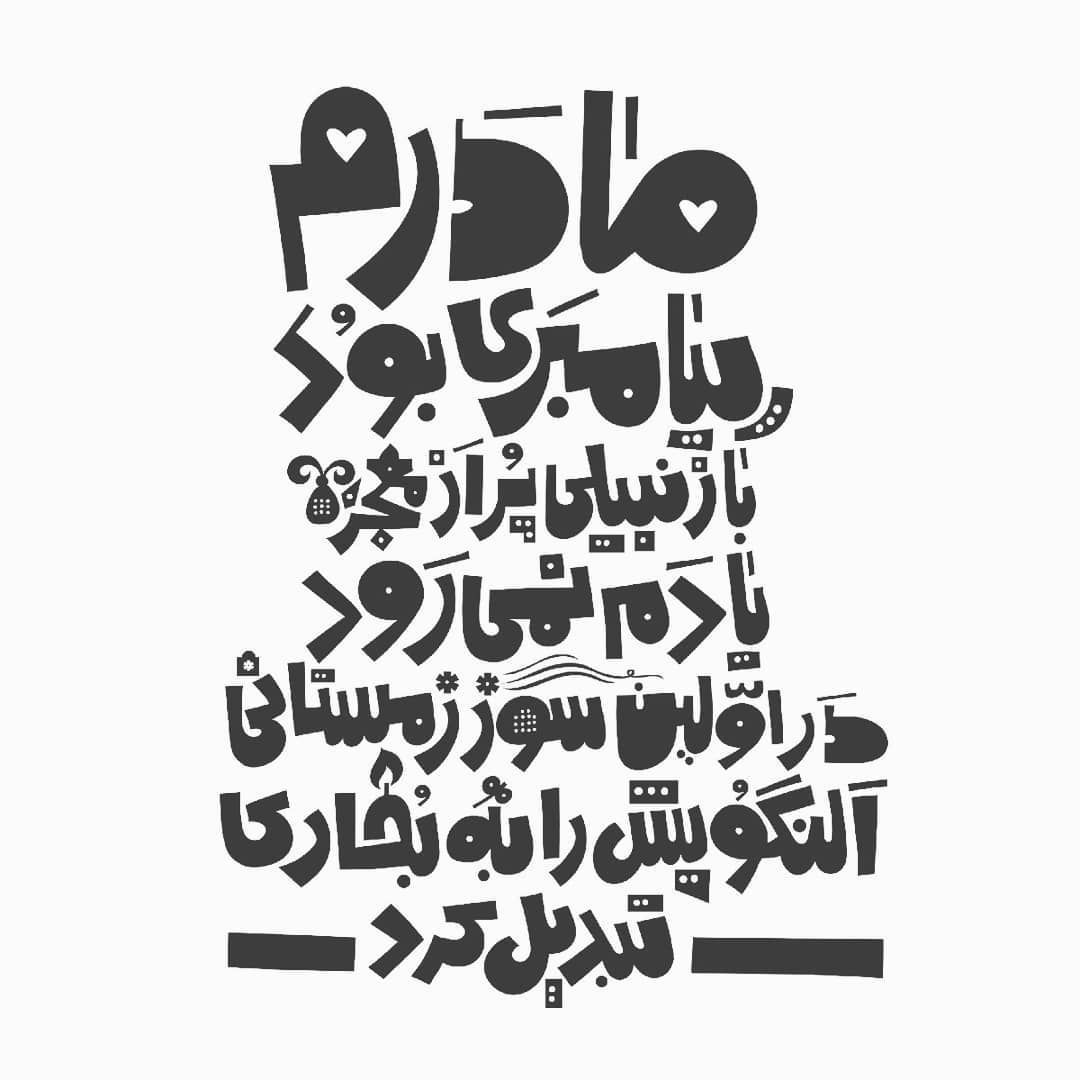 مادَرم
پیامبَری بوُد
با زَنبیلی پُر اَز مُعجزه
یادَم نمی‌رَوَد
دَر اوّلین سوز زمستانی
اَلنگوُیش را به بُخاری
تبدیل کرد